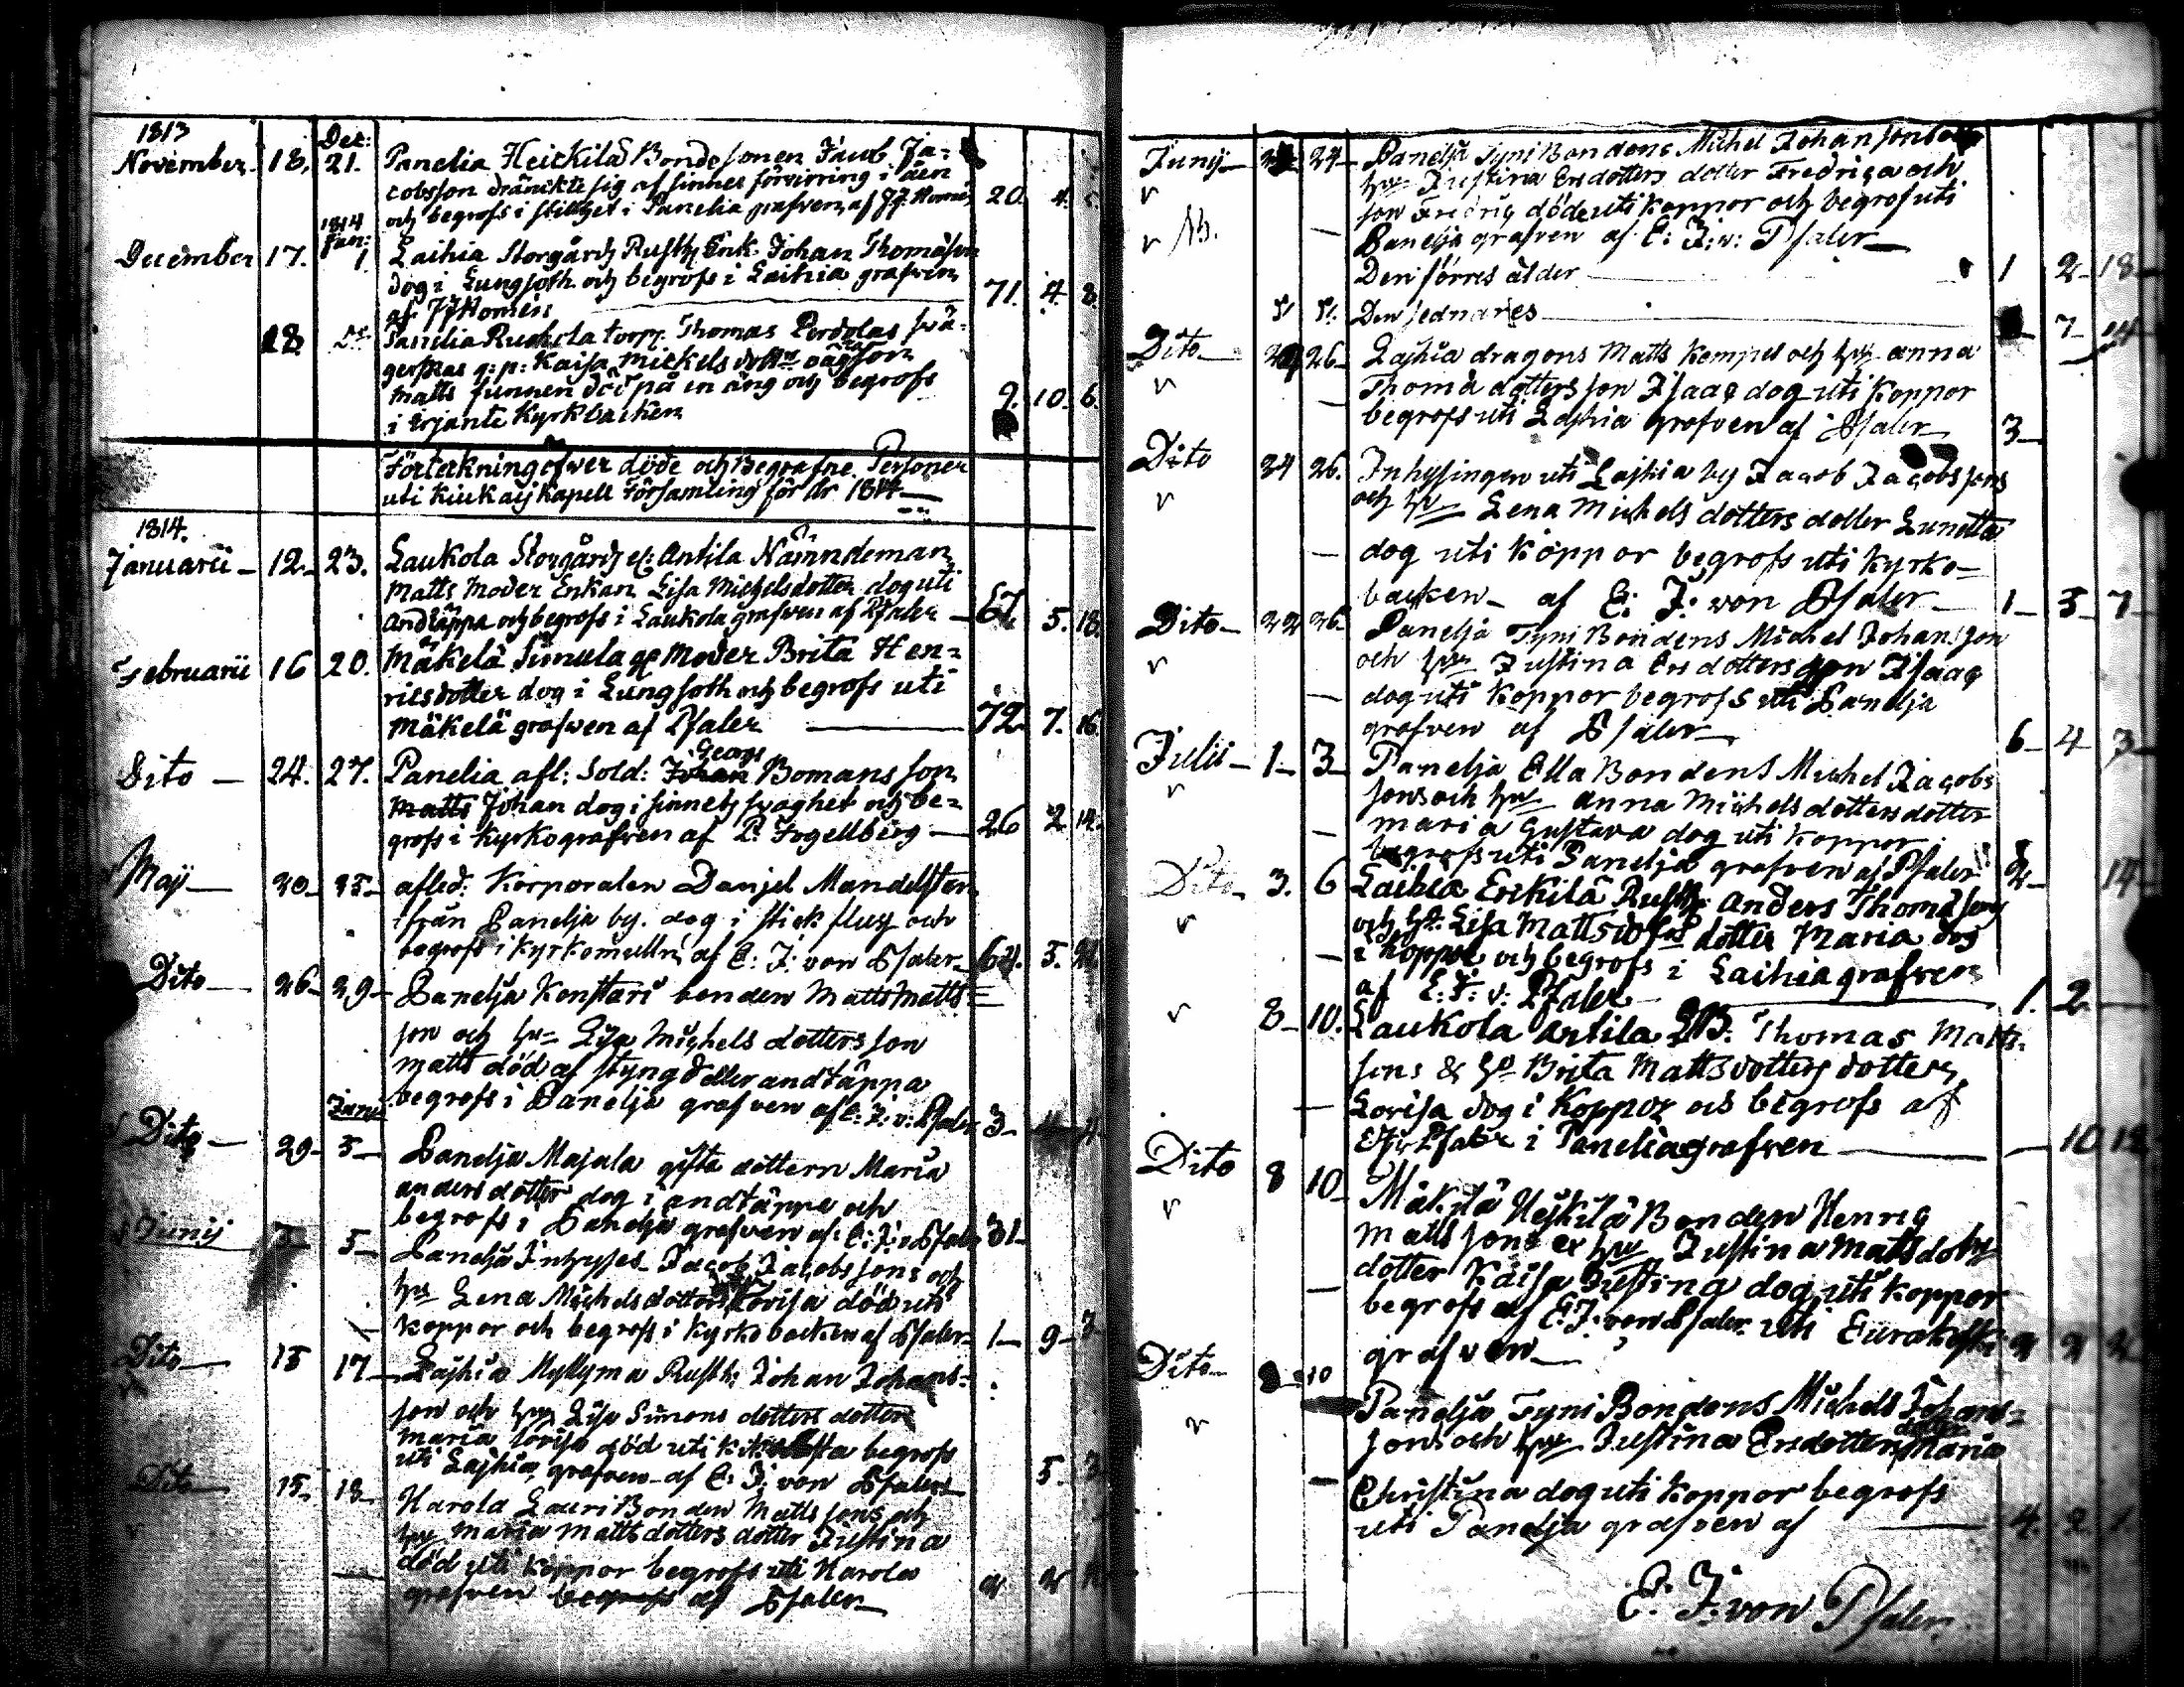 1813
November. 18. Dec: 21. Panelia Heickilä Bonde Sonen Jacob Ja-
cobsson dränckte sig af sinnes förvirring i åen
och begrofs i stillhet i Panelia grafven af J.J. 20. 4.
1814 Jan:
December 17. 1. Laihia Storgårds Rusth: Enk: Johan Thomason
dog i Lungsoth och begrofs i Laihia grafven 71. 4. 8.
af JJ Homén
18. Panelia torp: Thomas
gerskas q: p: Kaisa Mickels son
Matts funnen död på en äng och begrofs 9. 10. 6.
i Erjante Kyrkbacken
Förteckning öfwer döde och Begrafne Personer
uti Kiukais Kapell Församling för år 1814
1814.
Januarii 12 23. Laukola Storgårds Antila Nämndeman
Matts Moder Enkan Lisa Michelsdotter dog uti
andtäppa och begrofs i Laukola grafven af Pfaler 67. 5. 18.
Februarii 16 20. Mäkelä Simula Moder Brita Hen-
ricsdotter dog i Lungsoth och begrofs uti
Mäkelä grafven af Pfaler 72. 7. 16.
Dito 24. 27. Panelia afl: Sold: Johan Georg Bomans son
Matts Johan dog i sinnets svaghet och be-
grofs i Kyrkografven af P. Fogelberg 26 2. 14.
Maji 20 25 afled: Korporalen Danjel Mandelsten
från Panelja by. dog i stick flug och
begrofs i Kyrkomullen af E: J: von Pfaler 64. 5.
Dito 26 29 Panelja Konstari bonden Matts Matts
son och hu Lisa Michels dotters son
matts död af styng eller andtäppa
begrofs i Panelja grafven af E: J: v: Pfaler 3 4
Junii
Dito 29 5 Panelja Majala gifta dottern Maria
anders dotter dog i andtäppa och
begrofs i Panelja grafven af: E: J: v Pfaler 31
Junij 5 Panelja Inhyses Jacob Jacobs sons och
hu Lena Michelsdotters Lovisa död uti
koppor och begrofs i Kyrko backen af Pfaler 1 9 3
Dito 15 17 Lajhia Myllyma Rusth: Johan Johans-
son och hu Lisa Simons dotters dotter
maria lovisa död uti kikhosta begrofs
uti Lajhia grafven af E: J: von Pfaler 5 3
Dito 15. 18 Harola Lauri Bonden Matts sons och
hu Maria matts dotters dotter Justina
död uti koppor begrofs uti Harola
grafven begrofs af Pfaler 2 2
Junij 24 Panelja Tyni Bondens Michel Johansons
hu Justina Ersdotters dotter Fredrica och
son Fredrig döde uti koppor och begrof uti
Panelja grafven af E: J: v: Pfaler
Den förres ålder 1 2 18
Den sednares 7 14
Dito 26 Lajhia dragons Matts Kompel och hu anna
Thoma dotters son Isaac dog uti koppor
begrofs uti Lajhia grafven af Pfaler 3
Dito 24 26. Inhysingen uti Lajhia by Jacob Jacobs sons
och hu Lena Michels dotters dotter Lunetta
dog uti koppor begrofs uti kyrko-
backen af E: J: von Pfaler 1 3 7
Dito 22 26 Panelja Tyni Bondens Michel Johansson
och hu Justina Ers dotters son Isaac
dog uti koppor begrofs uti Panelja
grafven af Pfaler 6 4 3
Julii 1 3 Panelja Ella Bondens Michel Jacobs
sons och hu anna Michels dotters dotter
maria Gustava dog uti koppor
begrofs uti Panelja grafven af Pfaler 2 14
Dito 3. 6 Laihia Erkilä Rusth: Anders Thomasons
och H: Lisa Mattsdotters dotter Maria dog
i koppor och begrofs i Laihia grafven
af E: J: v: Pfaler 1. 2
8 10. Laukola Antila Thomas Matts
sons & H: Brita Mattsdotters dotter
Lovisa dog i Koppor och begrofs af
EJ:v: Pfaler i Panelia grafven 10 12
Dito 8 10 Mäkilä Heikilä Bonden Henrig
matts sons & hu Justina Matts dotters
dotter Kaisa Justina dog uti koppor
begrofs af E: J: von Pfaler uti
grafven
Dito 8 10
Panelja Tyni Bondens Michels Johans-
sons och hu Justina Ersdotters dotter maria
Christina dog uti koppor begrofs
uti Panelja grafven af 4. 2
E: J: von Pfaler